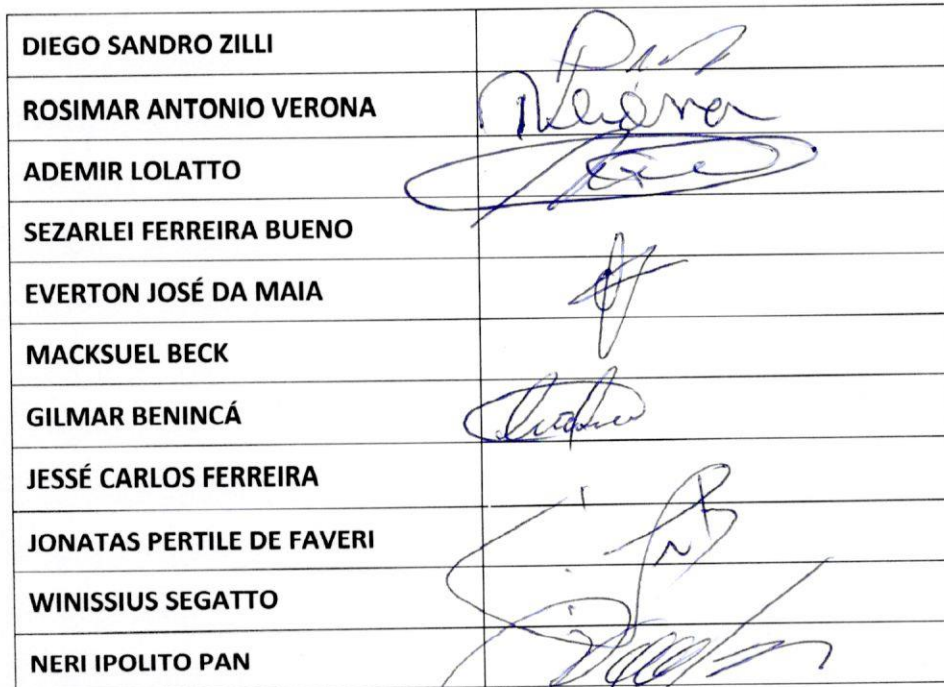 DIEGO SANDRO ZILLI
ROSIMAR ANTONIO VERONA
ADEMIR LOLATTO
SEZARLEI FERREIRA BUENO
EVERTON JOSÉ DA MAIA
MACKSUEL BECK
GILMAR BENINCÁ
JESSÉ CARLOS FERREIRA
JONATAS PERTILE DE FAVERI
WINISSIUS SEGATTO
NERI IPOLITO PAN